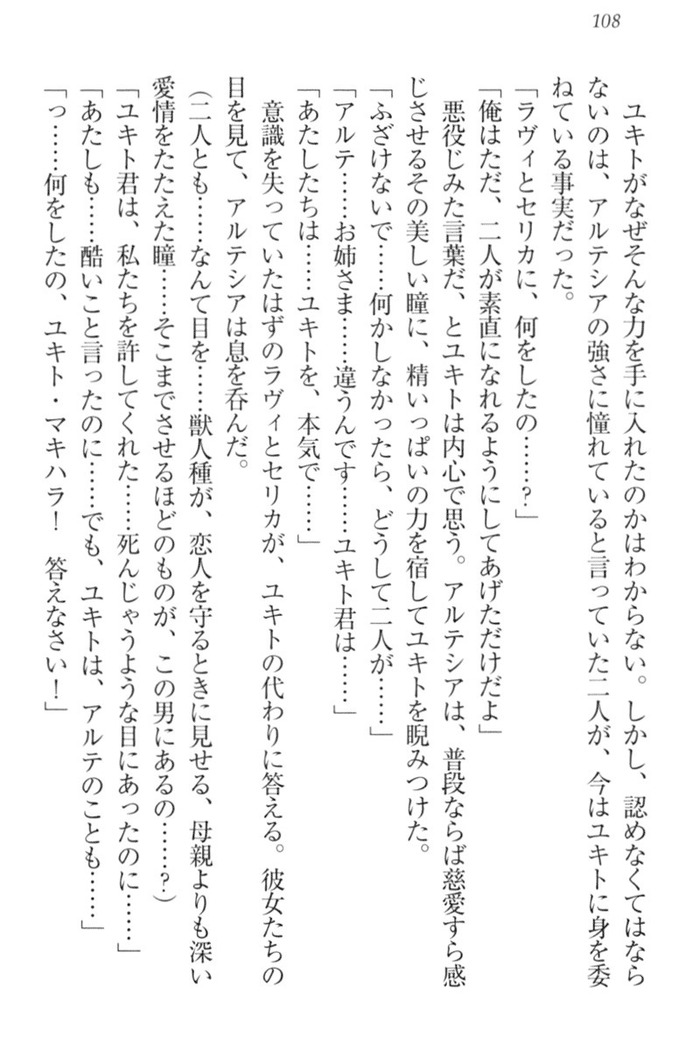 108
ユキトがなぜそんな力を手に入れたのかはわからない。しかし、認めなくてはなら
ないのは、アルテシアの強さに憧れていると言っていた二人が、今はユキトに身を委
ねている事実だった。
「ラヴィとセリカに、何をしたの……?」
「俺はただ、二人が素直になれるようにしてあげただけだよ」
悪役じみた言葉だ、とユキトは内心で思う。アルテシアは、普段ならば慈愛すら感
じさせるその美しい瞳に、精いっぱいの力を宿してユキトを睨みつけた。
「ふざけないで……何かしなかったら、どうして二人が……」
「アルテ……お姉さま……違うんです……ユキト君は……」
「あたしたちは……ユキトを、本気で……」
意識を失っていたはずのラヴィとセリカが、ユキトの代わりに答える。彼女たちの
目を見て、アルテシアは息を呑んだ。
(二人とも……なんて目を……獣人種が、恋人を守るときに見せる、母親よりも深い
愛情をたたえた瞳……そこまでさせるほどのものが、この男にあるの……?)
「ユキト君は、私たちを許してくれた……死んじゃうような目にあったのに……」
「あたしも……酷いこと言ったのに……でも、ユキトは、アルテのことも……」
「っ……何をしたの、ユキト・マキハラ! 答えなさい!」